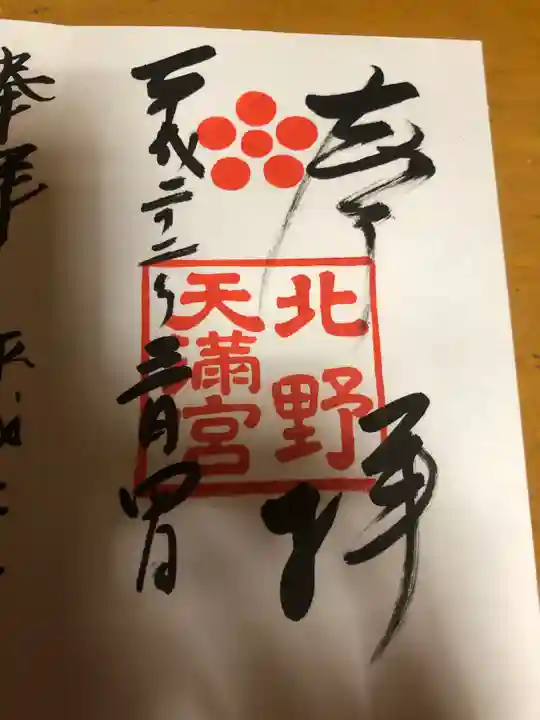 奉拝
北野
天満宮
平成二十二年三月四日
奉拝
平成二